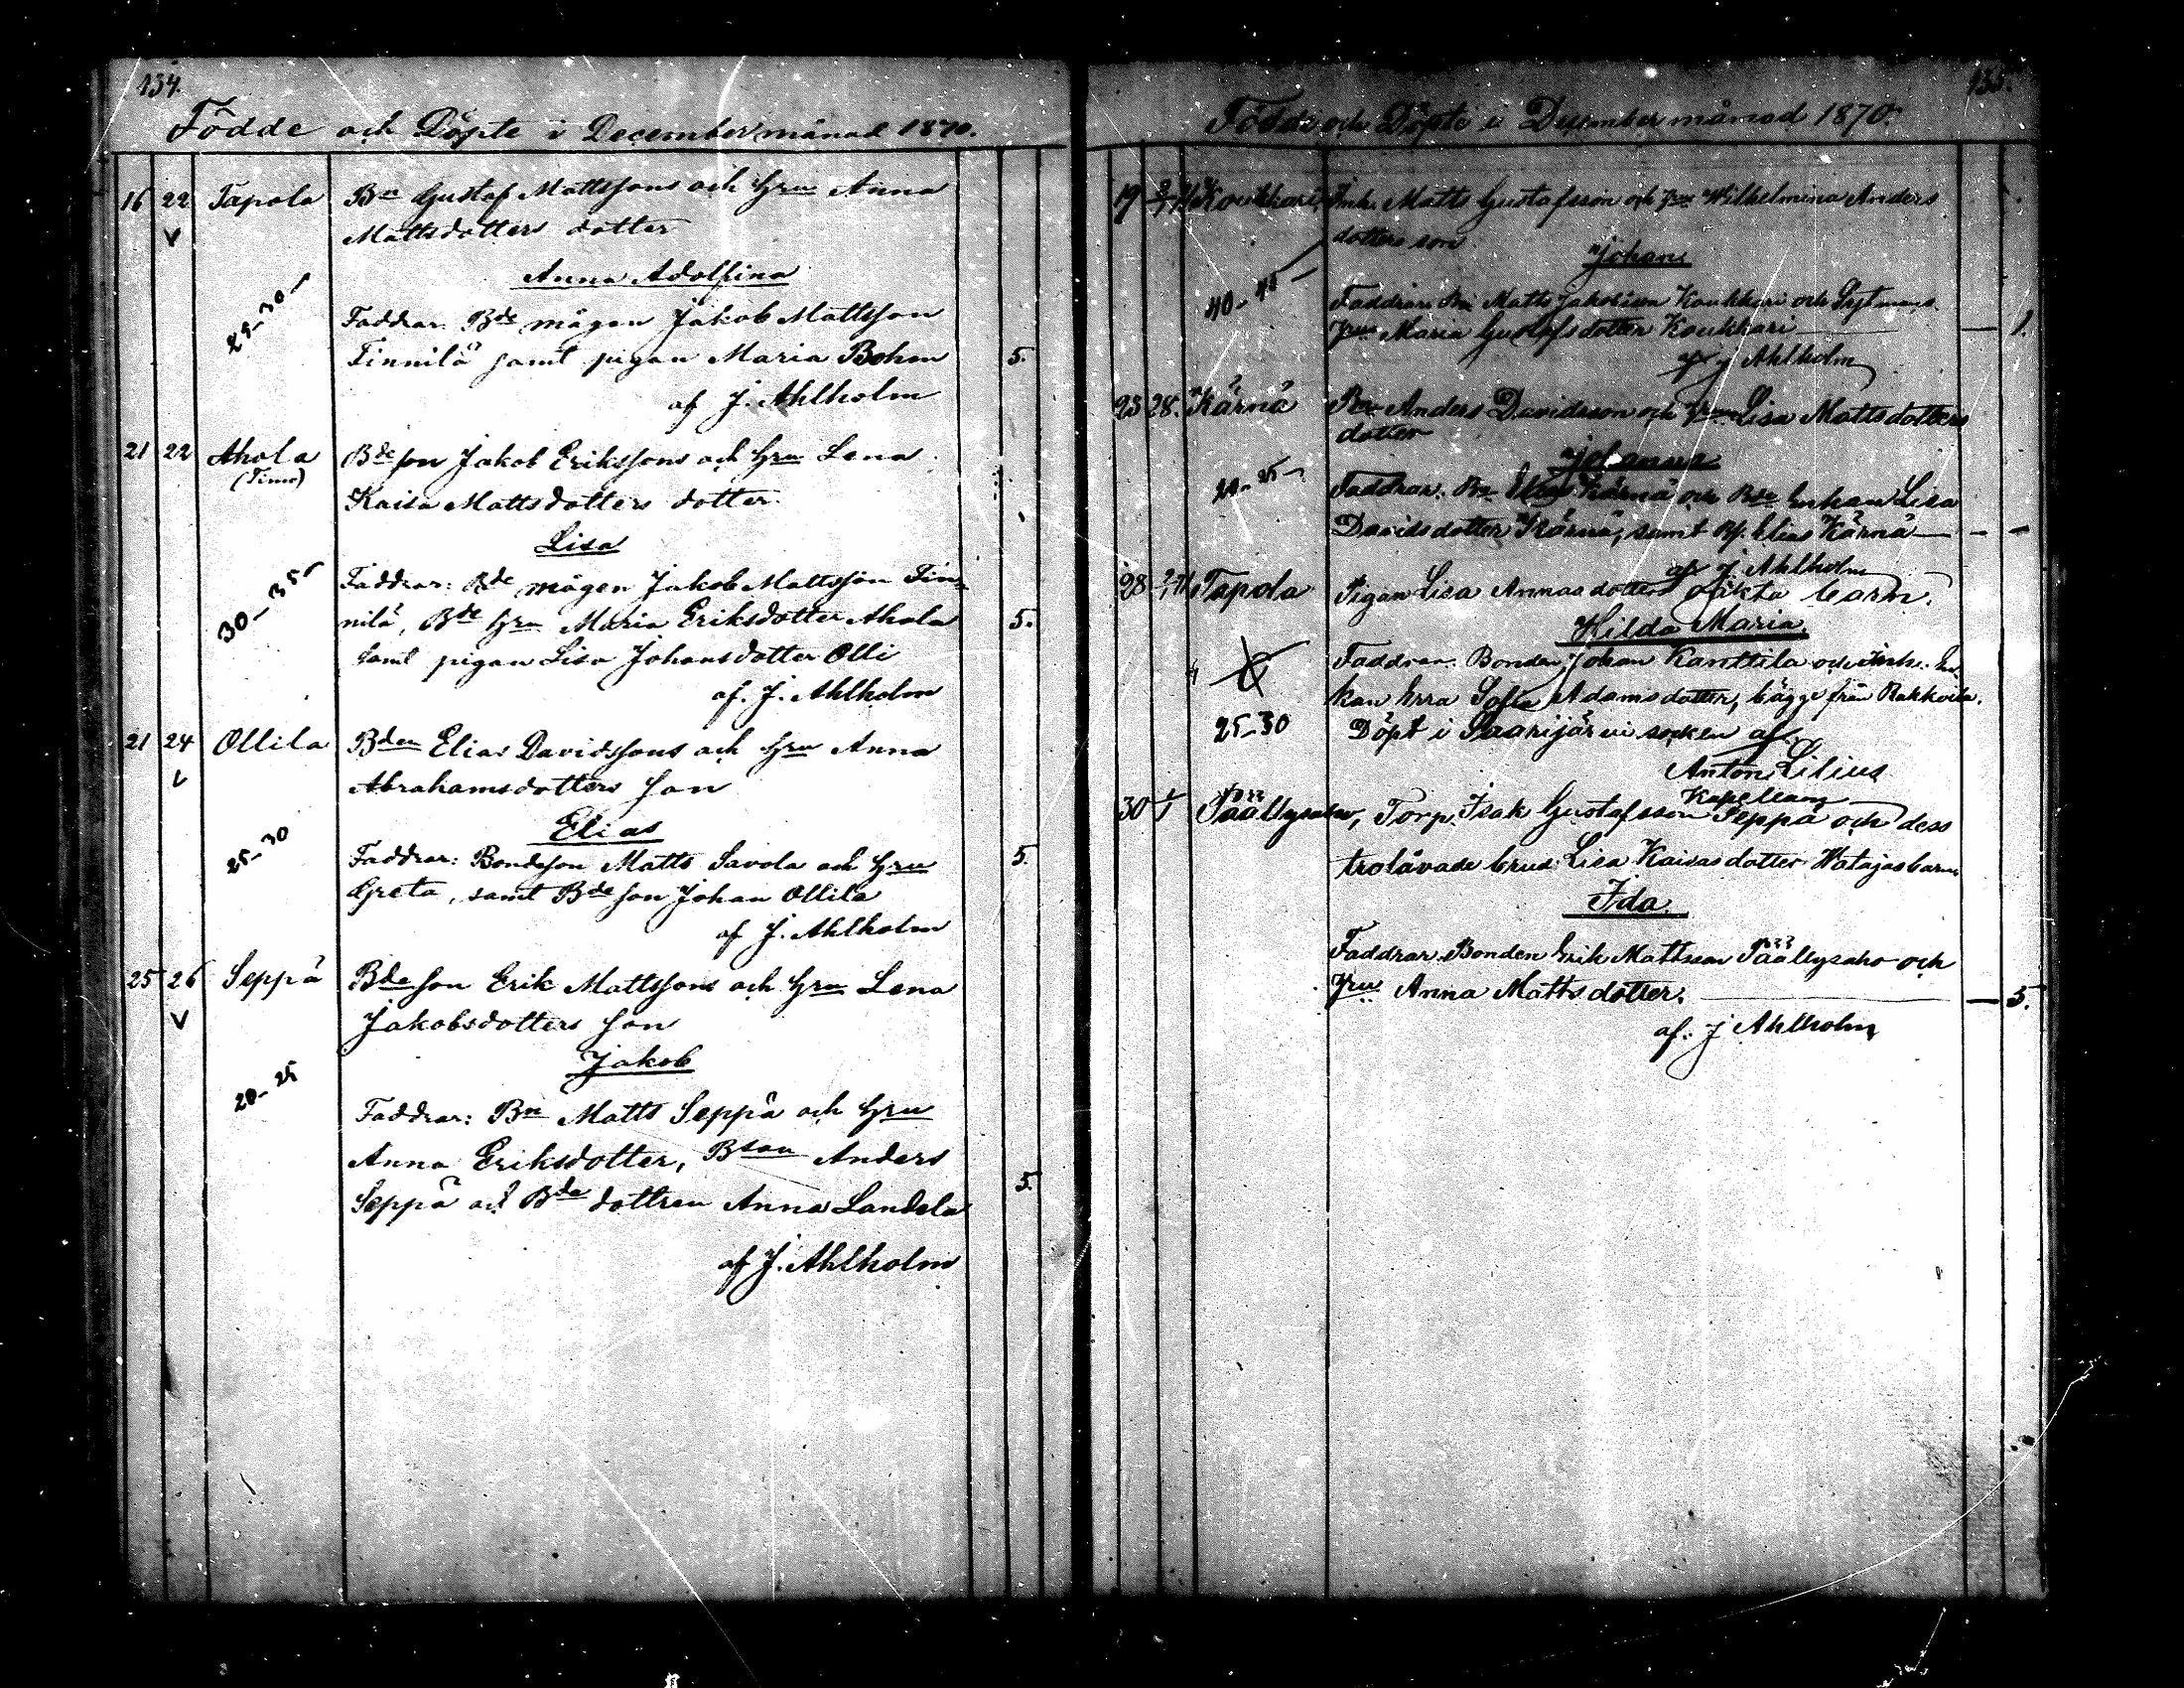 134.
Födde och Döpte i December månad 1870.
16 22 Tapola Bn Gustaf Mattssons och Hru Anna
Mattsdotters dotter
Anna Adolfina
25-30
Faddrar: Bde mågen Jakob Mattsson
Tinnilä samt pigan Maria Bohm 5.
af J. Ahlholm
21 22 Ahola Bde son Jakob Erikssons och Hru Lena
(Timo)
Kaisa Mattsdotters dotter
Lisa
30-35
Faddrar: Bde mågen Jakob Mattsson Tin-
nilä, Bde Hru Maria Eriksdotter Ahola 5.
samt pigan Lisa Johansdotter Olli
af. J. Ahlholm
21 24 Ollila Bden Elias Davidssons och Hru Anna
Abrahamsdotters son
Elias
25-30
Faddrar: Bondeson Matts Savola och Hru 5.
Greta, samt Bde son Johan Ollila
af J. Ahlholm
25 26 Seppä Bde son Erik Mattssons och Hru Lena
Jakobsdotters son
Jakob
20-25
Faddrar: Bn Matts Seppä och Hru
Anna Eriksdotter, Bson Anders
Seppä och Bde dottren Anna Landela 5.
af J. Ahlholm
135.
Födde och Döpte i December månad 1870.
19 Koukkari Inh. Matts Gustafsson och Hru Wilhelmina Anders
dotters son
Johan
40-45
Faddrar: Bn Matts Jakobsson Koukkari och
Hru Maria Gustafsdotter Koukkari — 1.
af J Ahlholm
23 28. Kärnä Bn Anders Davidsson och Hru Lisa Mattsdotters
dotter
Johanna
20-25
Faddrar: Bn Kärnä och Bde Enkan Lisa
Davidsdotter Kärnä, samt Elias Kärnä — - -
af J Ahlholm
28 Tapola Pigan Lisa Annasdotters oäkta barn.
Hilda Maria.
Faddrar: Bonden Johan Kanttila och Inh. En
kan Erra Sofia Adamsdotter, bägge från Rakkoila.
25-30
Döpt i Saarijärvi socken af
Anton Lilius
Kapellan
30 Päällysaho, Torp. Isak Gustafsson Seppä och dess
trolåvade brud Lisa Kaisasdotter Hatajas barn
Ida.
Faddrar Bonden Erik Mattsson Päällysaho och
Hru Anna Mattsdotter. — 5.
af. J Ahlholm